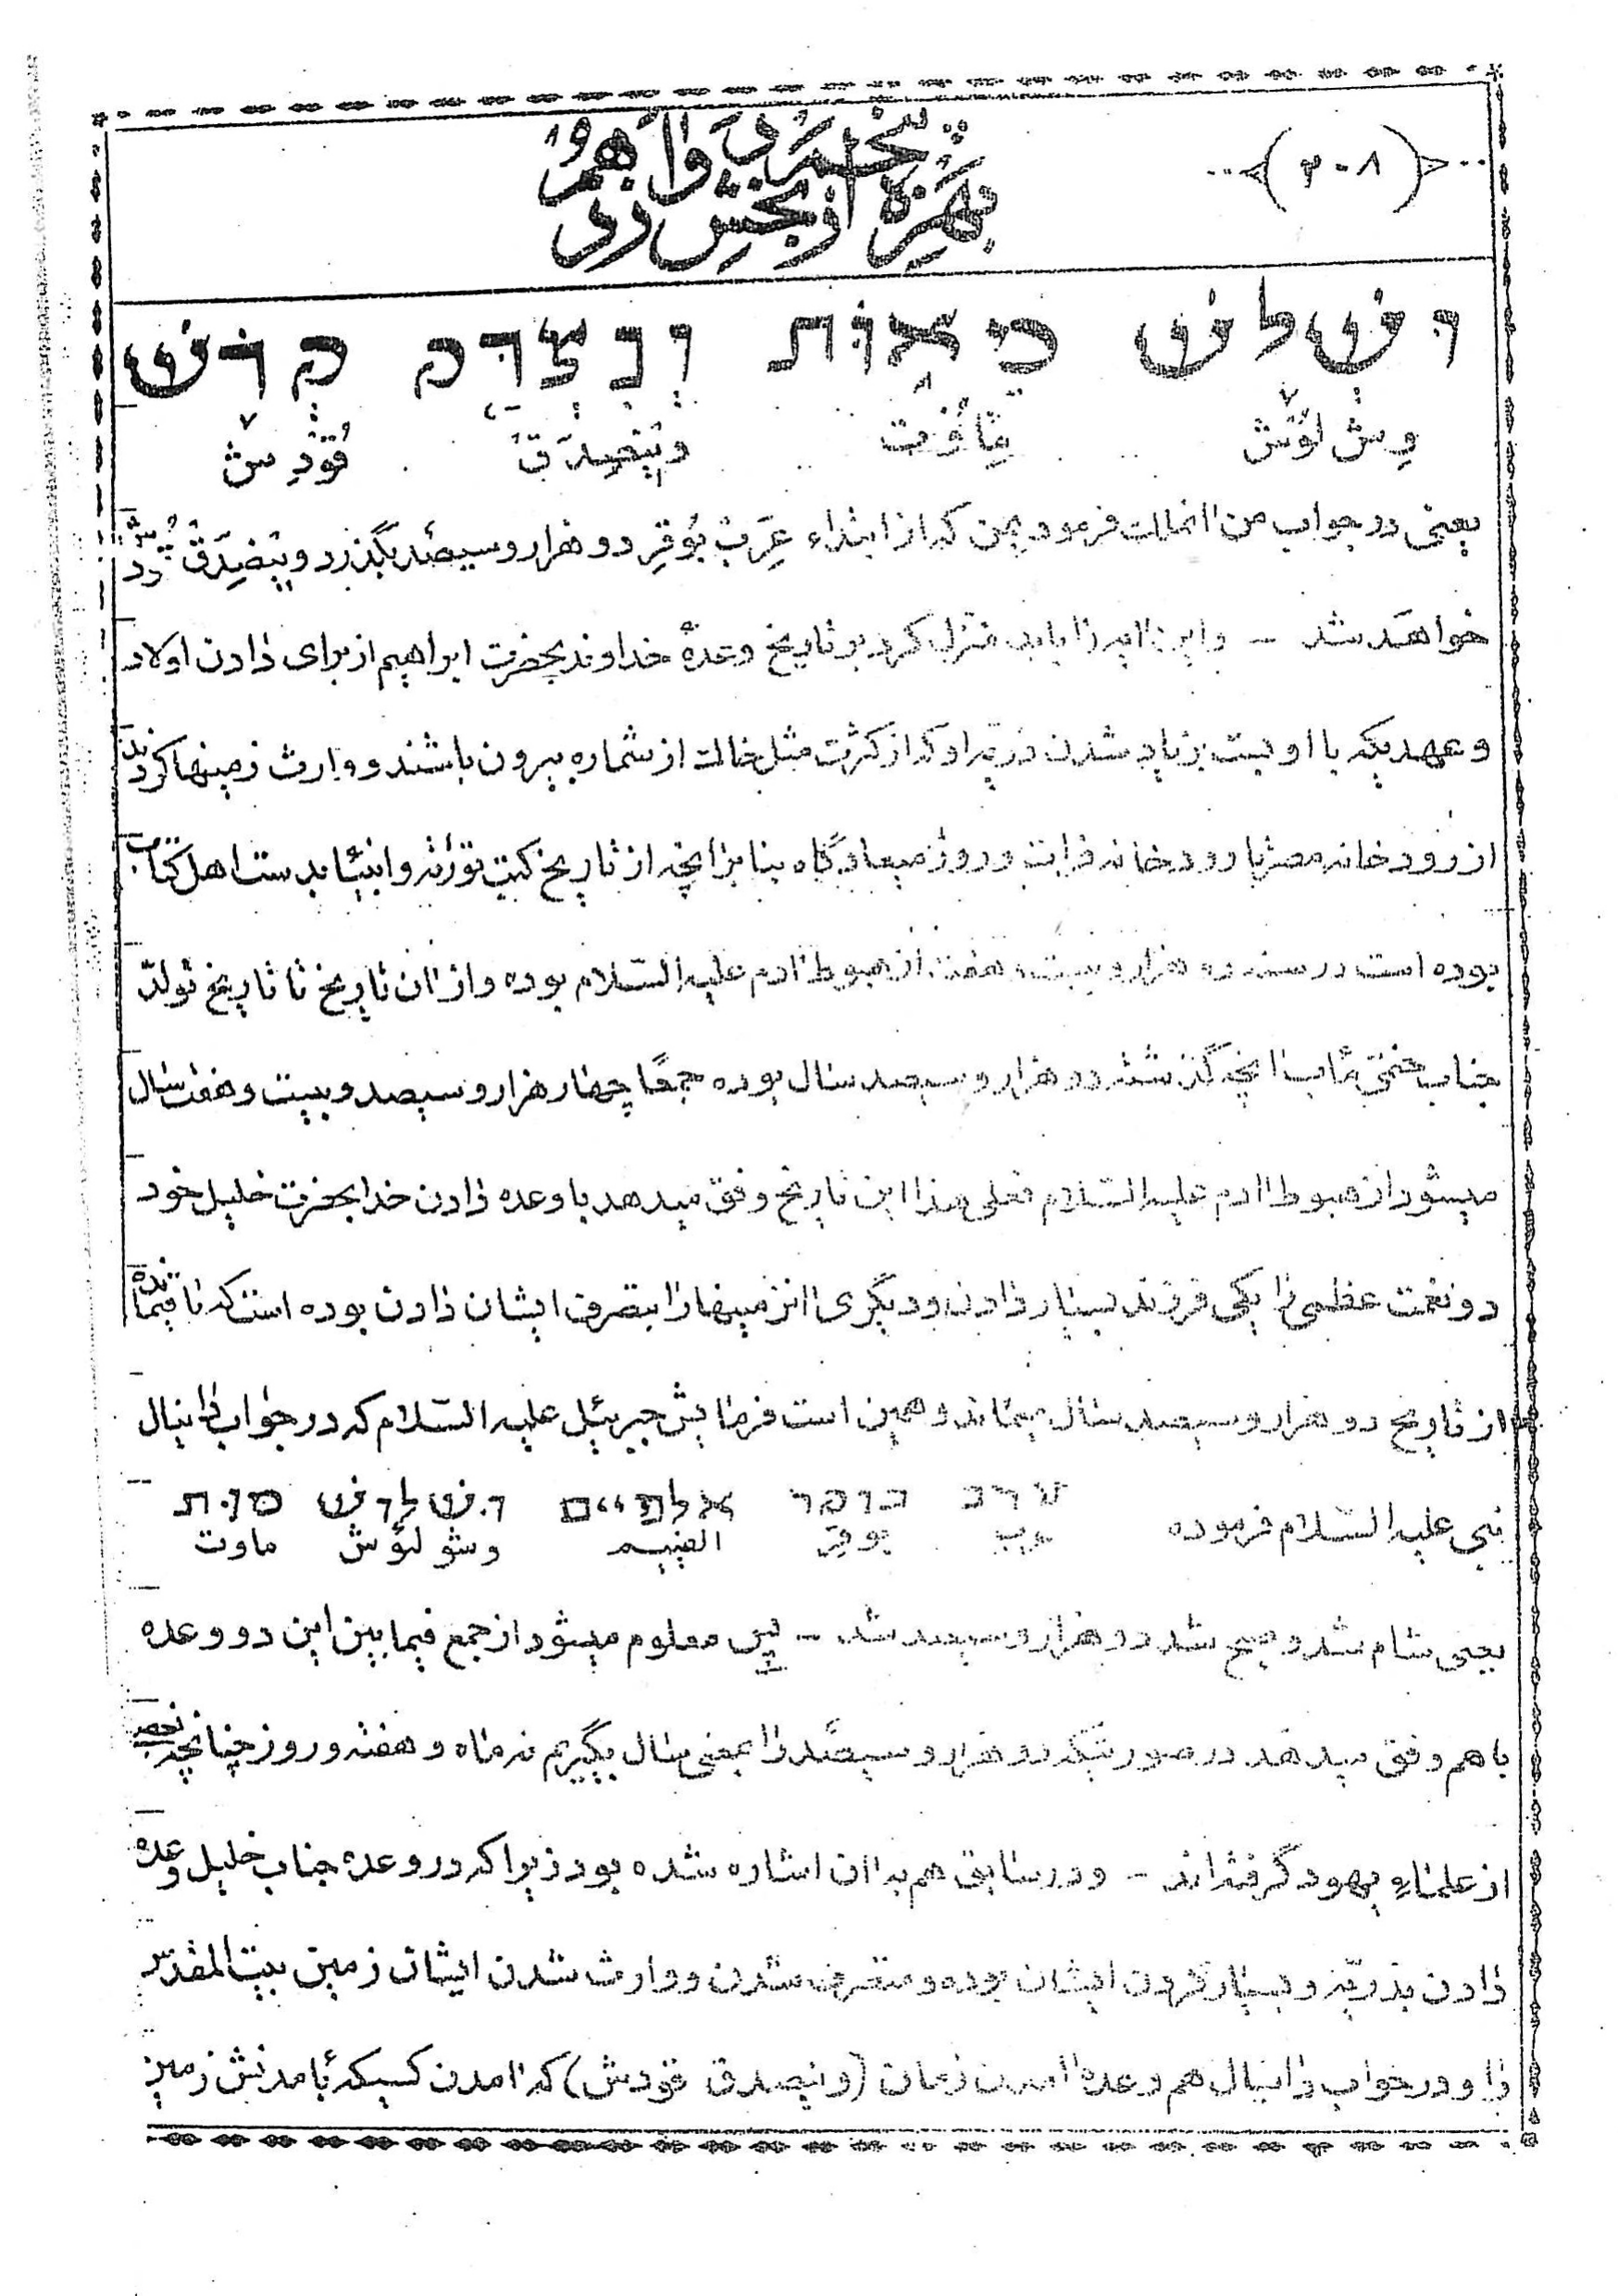 (۲۰۸)
ושלש מאות ונצדק קדש
وِش لوُش مِاوُت وِنِیصِدَق قوُدِش
یعنی در جواب من انملک فرمود بمن که از ابتداء عِرَب بُوقِر دو هزار و سیصد بگذرد و نیصِدَق قودش
خواهد شد – و این امر را باید منزل کرد بر تاریخ وعدهٔ خداوند بحضرت ابراهیم از برای دادن اولاد
و عهدیکه با او بست بزیاد شدن ذریه او که از کثرت مثل خاک از شماره بیرون باشند و وارث زمینها کردند
از رود خانه مصر تا رود خانه فرات و روز میعادگاه بنا بر انچه از تاریخ کتب تورٰیة و انبیٓا بدست اهل کتاب
بوده است در سنه دو هزار و بیست و هفت از هبوط ادم علیه السّلام بوده و از ان تاریخ تا تاریخ تولّد
جناب ختمی مٔاب انچه گذشته دو هزار و سیصد سال بوده جمعًا چهار هزار و سیصد و بیست و هفت سال
میشود از هبوط ادم علیه السّلام فعلی هذا این تاریخ وفق میدهد با وعده دادن خدا بحضرت خلیل خود
دو نعمت عظمی را یکی فرزند بسیار دادن و دیگری انزمینها را بتصرف ایشان دادن بوده است که تا قیمانده
از تاریخ دو هزار و سیصد سال بیماند و همین است فرمایش جبرئیل علیه السّلام که در جواب دانیال
نبی علیه السّلام فرموده ערב בוקר אלפיים ושלוש מוות
عرب بوقر الفییم وشو لوُش ماوت
یعنی شام شد و صبح شد دو هزار و سیصد شد – پس معلوم میشود از جمع فیما بین این دو وعده
با هم وفق میدهد در صورتیکه دو هزار و سیصد را بمعنی سال بگیریم نه ماه و هفته و روز چنانچه بعضی
از علماءِ یهود گرفته‌اند – و در سابق هم به ان اشاره شده بود زیرا که در وعدهٔ جناب خلیل وعده
دادن بذریّه و بسیار کردن ایشان بوده و متصرف شدن و وارث شدن ایشان زمین بیت المقدّس
را و در خواب دانیال هم وعدهٔ امدن زمان (ونیصدق قودش) که امدن کسیکه بٔامدنش زمین